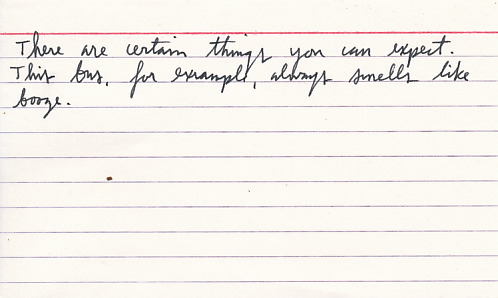 There are certain things you can expect.
This bus, for example, always smells like
booze.